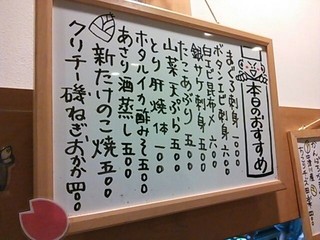 本日のおすすめ
まぐろ刺身 一〇〇〇
ボタンエビ刺身 六〇〇
白エビ昆布〆 六〇〇
たこあぶり 五〇〇
山菜天ぷら 五〇〇
とり肝焼 一体 一〇〇
ホタルイカ酢みそ 五〇〇
あさり酒蒸し 五〇〇
新たけのこ焼 五〇〇
クリチー磯ねぎおかか 四〇〇